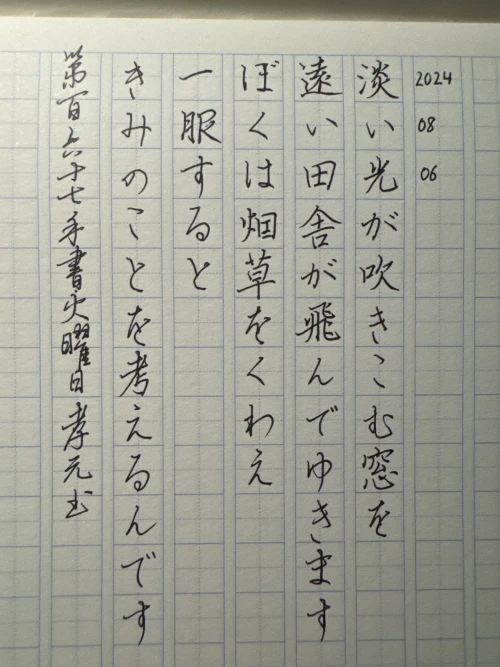 2024 08 06
淡い光が吹きこむ窓を
遠い田舎が飛んでゆきます
ぼくは煙草をくわえ
一服すると
きみのことを考えるんです
第百六十七手書火曜日孝元书